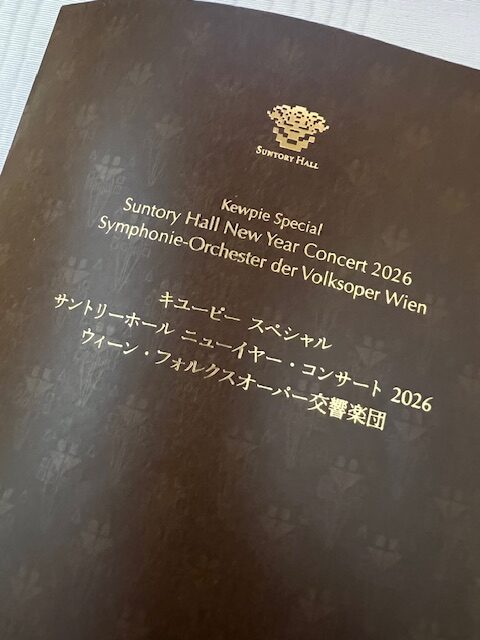 SUNTORY HALL
Kewpie Special
Suntory Hall New Year Concert 2026
Symphonie-Orchester der Volksoper Wien
キユーピー スペシャル
サントリーホール ニューイヤー・コンサート 2026
ウィーン・フォルクスオーパー交響楽団